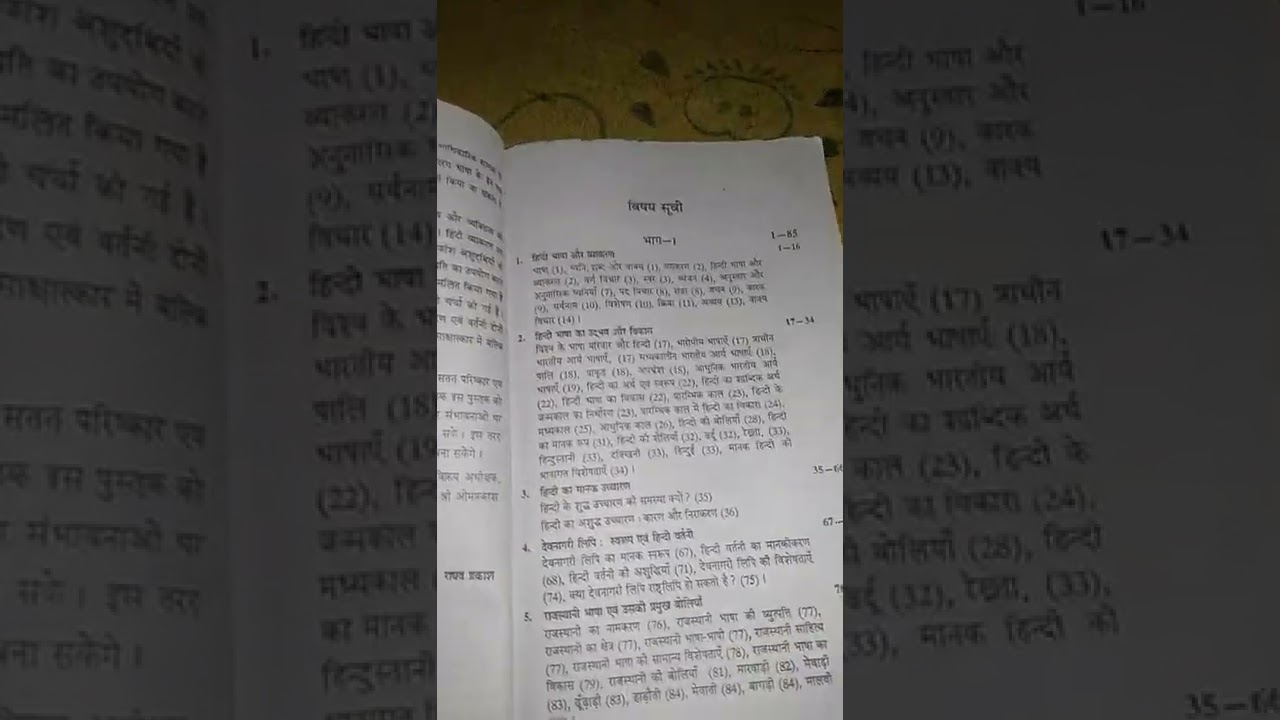 विषय सूची
भाग–1
1–85
1. हिंदी भाषा और व्याकरण
1–16
भाषा (1), ध्वनि, शब्द और वाक्य (1), व्याकरण (2), हिन्दी भाषा और
व्याकरण (2), वर्ण विचार (3), स्वर (3), व्यंजन (4), अनुस्वार और
अनुनासिक ध्वनियाँ (7), पद विचार (8), संज्ञा (8), वचन (9), कारक
(9), सर्वनाम (10), विशेषण (10), क्रिया (11), अव्यय (13), वाक्य
विचार (14) ।
2. हिन्दी भाषा का उद्भव और विकास
17–34
विश्व के भाषा परिवार और हिन्दी (17), भारोपीय भाषाएँ (17) प्राचीन
भारतीय आर्य भाषाएँ, (17) मध्यकालीन भारतीय आर्य भाषाएँ (18),
पालि (18), प्राकृत (18), अपभ्रंश (18), आधुनिक भारतीय आर्य
भाषाएँ (19), हिन्दी का अर्थ एवं स्वरूप (22), हिन्दी का शाब्दिक अर्थ
(22), हिन्दी भाषा का विकास (22), प्रारम्भिक काल (23), हिन्दी के
जन्मकाल का निर्धारण (23), प्रारम्भिक काल में हिन्दी का विकास (24),
मध्यकाल (25), आधुनिक काल (26), हिन्दी की बोलियाँ (28), हिन्दी
का मानक रूप (31), हिन्दी की शैलियाँ (32), उर्दू (32), रेख़्ता, (33),
हिन्दुस्तानी (33), दक्खिनी (33), हिन्दुई (33), मानक हिन्दी की
भाषागत विशेषताएँ (34) ।
3. हिन्दी का मानक उच्चारण
35–66
हिन्दी के शुद्ध उच्चारण की समस्या क्यों ? (35)
हिन्दी का अशुद्ध उच्चारण : कारण और निराकरण (36)
4. देवनागरी लिपि : स्वरूप एवं हिन्दी वर्तनी
67–
देवनागरी लिपि का मानक स्वरूप (67), हिन्दी वर्तनी का मानकीकरण
(68), हिन्दी वर्तनी की अशुद्धियाँ (71), देवनागरी लिपि की विशेषताएँ
(74), क्या देवनागरी लिपि राष्ट्रलिपि हो सकती है ? (75) ।
5. राजस्थानी भाषा एवं उसकी प्रमुख बोलियाँ
राजस्थानी का नामकरण (76), राजस्थानी भाषा की व्युत्पत्ति (77),
राजस्थानी का क्षेत्र (77), राजस्थानी भाषा-भाषी (77), राजस्थानी साहित्य
(77), राजस्थानी भाषा की सामान्य विशेषताएँ (78), राजस्थानी भाषा का
विकास (79), राजस्थानी की बोलियाँ (81), मारवाड़ी (82), मेवाड़ी
(83), ढूँढाड़ी (83), हाड़ौती (84), मेवाती (84), बागड़ी (84), मालवी
राघव प्रकाश